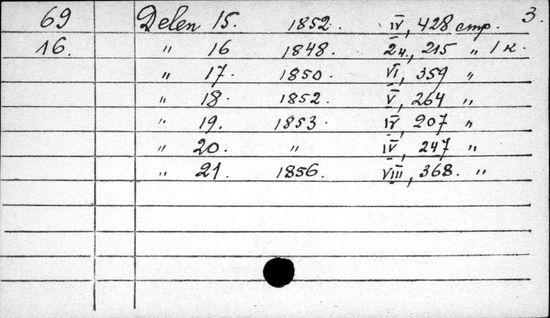 3.
69 Delen 15. 1852. IV, 428 стр.
16. " 16 1848. 2 н., 215 " 1 к.
" 17. 1850. VI, 359 "
" 18. 1852. V, 264 "
" 19. 1853. IV, 207 "
" 20. " IV, 247 "
" 21. 1856. VIII, 368. "